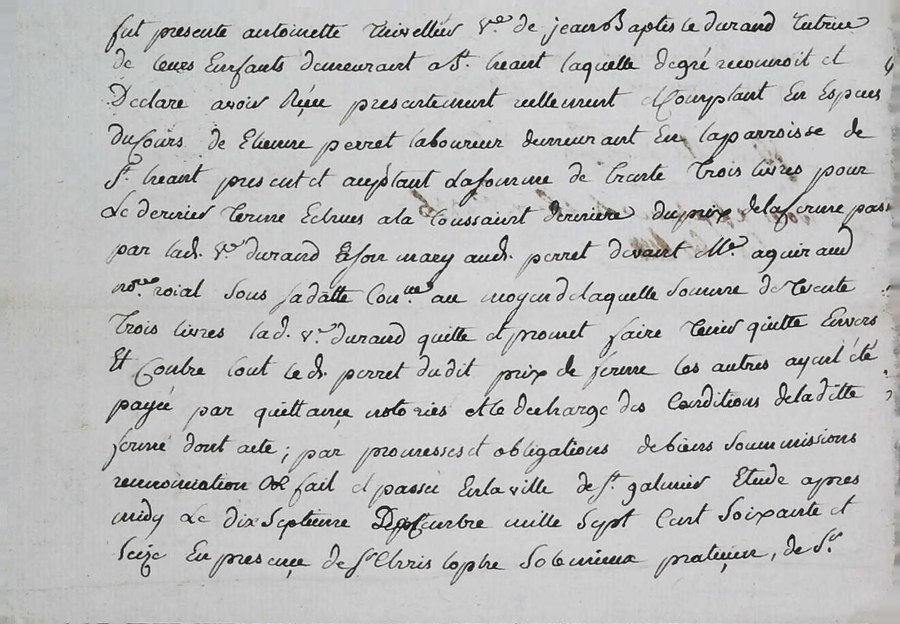 fut presente antoinette Thivellier v.e de jean Baptiste durand tutrice
de leurs Enfants demeurant a St. heant laquelle degré reconnoit et
Déclare avoir Reçue presentement reellement et Comptant En Especes
du Cours de Etienne perret laboureur demeurant En la parroisse de
St. heant present et aceptant La somme de trante Trois livres pour
Le dernier terme Echues a la Toussaint derniere du prix de la ferme pass
par lad. v.e durand et son mary aud. perret devant Me.
no.re roial sous sa datte au moyen de laquelle somme de Trente
Trois livres lad. v.e durand quitte et promet faire tenir quitte Envers
Et Contre tout led. perret dudit prix de ferme les autres ayant été
payée par quittançe notoriés et le decharge des Conditions de la ditte
ferme dont acte; par promesses et obligations de biens soummissions
renonciation fait et passé En la ville de St. galmier Etude apres
midy Le dix Septieme mille Sept Cent Soixante et
Seize En presençe de Sr. Christophe praticien, de Sr.